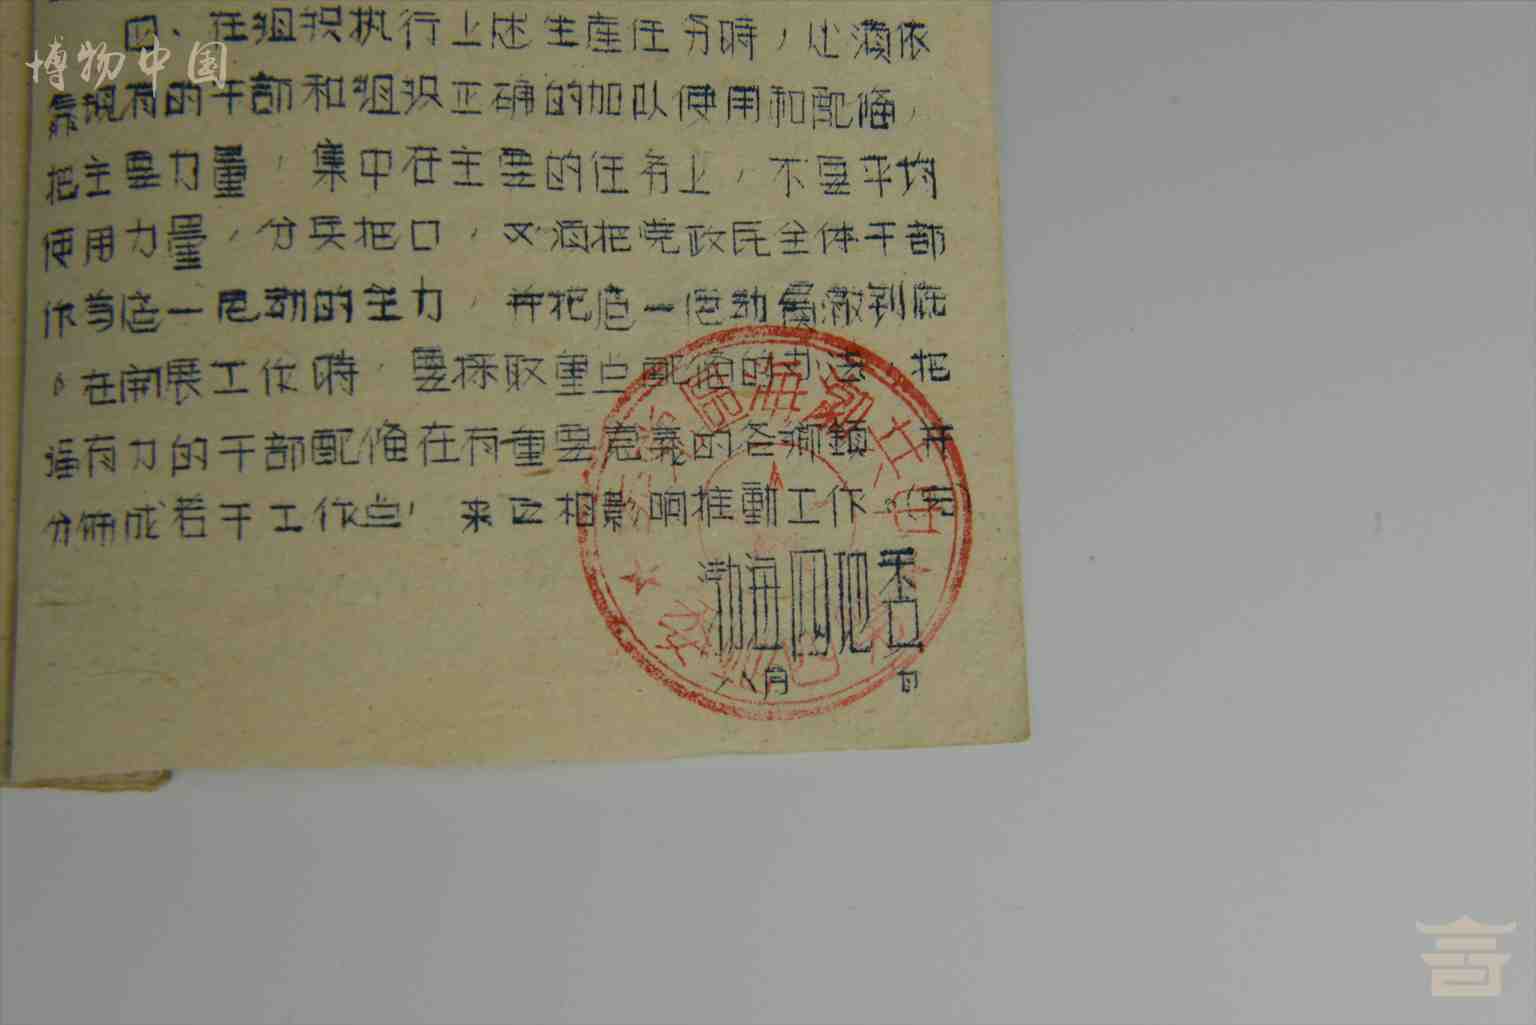 博物中国
四、在组织执行上述生産任务時，必须依
靠现有的干部和组织正确的加以使用和配俻，
把主要力量，集中在主要的任务上，不要平均
使用力量，分兵把口，又须把党政民全体干部
作为这一运动的主力，并把这一运动贯澈到底
。在開展工作時，要採取重点配俻的办法，把
强有力的干部配俻在有重要意義的各鄉鎮，并
分佈成若干工作点，来互相影响推動工作。
渤海四地委
八月 日